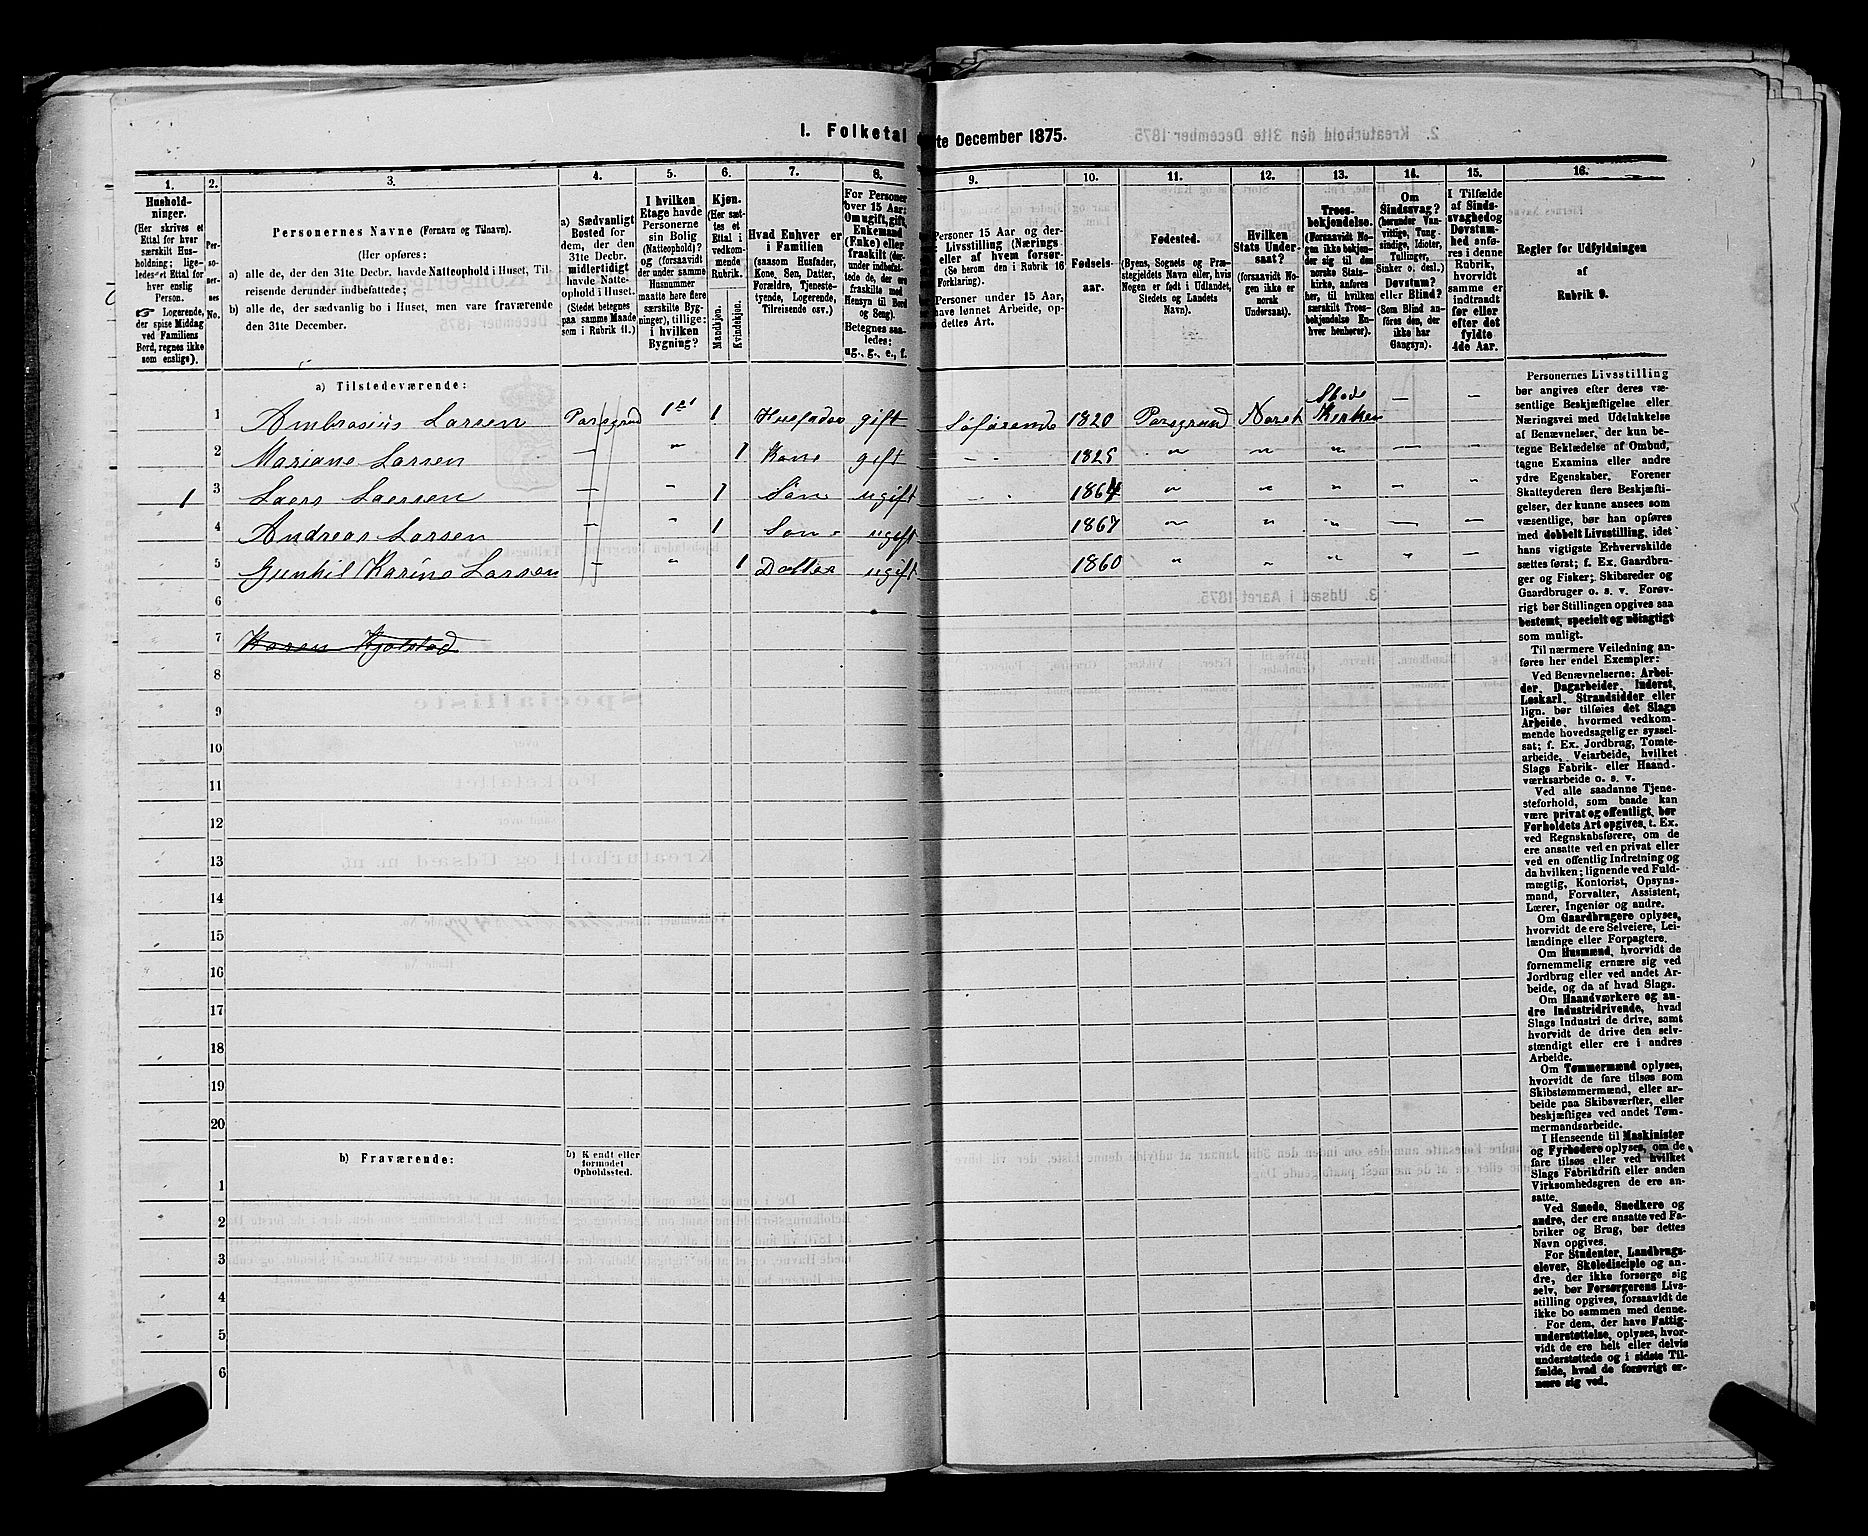 I. Folketal
te December 1875.
1. 2. 3. 4. 5. 6. 7. 8. 9. 10. 11. 12. 13. 14. 15. 16.
Hushold-
ninger.
(Her skrives et
Ettal for hver
særskilt Hus-
holdning; lige-
ledes et Ettal for
hver enslig
Person.
☞ Logerende,
der spise Middag
ved Familiens
Bord, regnes ikke
som enslige).
Per-
so-
ner-
nes
No.
Personernes Navne (Fornavn og Tilnavn).
(Her opføres:
a) alle de, der den 31te Decbr. havde Natteophold i Huset, Til-
reisende derunder indbefattede;
b) alle de, der sædvanlig bo i Huset, men vare fraværende
den 31te December.
a) Sædvanligt
Bosted for
dem, der den
31te Decbr.
midlertidigt
havde Natte-
ophold i Huset.
(Stedet betegnes
paa samme Maade
som i Rubrik 11.)
I hvilken
Etage havde
Personerne
sin Bolig
(Natteophold)?
og (forsaavidt
der under samme
Husnummer
maatte høre flere
særskilte Byg-
ninger), tillige:
hvilken
Bygning?
Kjøn.
(Her sæt-
tes et
Ettal i
vedkom-
mende
Rubrik.)
Mandkjøn.
Kvindekjøn.
Hvad Enhver er
i Familien
(saasom Husfader,
Kone, Søn, Datter,
Forældre, Tjeneste-
tyende, Logerende,
Tilreisende osv.)
For Personer
over 15 Aar:
Om ugift, gift,
Enkemand
(Enke) eller
fraskilt (der-
under indbefat-
tede de, der ere
fraskilte med
Hensyn til Bord
og Seng).
Betegnes saa-
ledes:
ug., g., e., f.
Personer 15 Aar og der-
Livsstilling (Nærings-
eller af hvem forsør-
(Se herom den i Rubrik 16
Forklaring).
Personer under 15 Aar,
have lønnet Arbeide, op-
deltes Art.
Fødsels-
aar.
Fødested.
(Byens, Sognets og Præ-
stegjeldets Navn eller, hvis
Nogen er født i Udlandet,
Stedets og Landets
Navn).
Hvilken
Stats Under-
saat?
(forsaavidt No-
gen ikke er
norsk
Undersaat).
Troes-
bekjendelse.
(Forsaavidt No-
gen ikke bekjen-
der sig til den
norske Stats-
kirke, anføres
her, til hvilken
særskilt Troes-
bekjendelse En-
hver henhører).
Om
Sindssvag?
(herunder Van-
vittige, Tung-
sindige, Idioter,
Tullinger,
Sinker o. desl.)
Døvstum?
eller Blind?
(Som Blind an-
føres den, der
ikke har
Gangsyn).
I Tilfælde
af Sinds-
svaghed og
Døvstum-
hed anfø-
res i denne
Rubrik,
hvorvidt
samme er
indtraadt
før eller
efter det
fyldte
4de Aar.
Regler for Udfyldningen
af
Rubrik 9.
a) Tilstedeværende:
1 Ambrosius Larsen Porsgrund 1st 1 Husfader gift Søfarende 1820 Porsgrund Norsk Stads Kirken — —
2 Mariane Larsen — " 1 Kone gift - - 1825 " " " — —
1 3 Laers Laersen — " 1 Søn ugift - - 1864 " " " — "
4 Andreas Larsen — " 1 Søn ugift 1867 " " " — —
5 Gunhil Karine Larsen — " 1 Datter ugift 1860 " " " " —
6
7 Karen Kjølstad
8
9
10
11
12
13
14
15
16
17
18
19
20
b) Fraværende:
b) Kjendt eller
formodet
Opholdssted.
1
2
3
4
5
6
Personernes Livsstilling
bør angives efter deres væ-
sentlige Beskjæftigelse eller
Næringsvei med Udelukkelse
af Benævnelser, der kun be-
tegne Beklædelse af Ombud,
tagne Examina eller andre
ydre Egenskaber. Forener
Skatteyderen flere Beskjæfti-
gelser, der kunne ansees som
væsentlige, bør han opføres
med dobbelt Livsstilling, idet
hans vigtigste Erhvervskilde
sættes først; f. Ex. Gaardbru-
ger og Fisker; Skibsreder og
Gaardbruger o. s. v. Forøv-
rigt bør Stillingen opgives saa
bestemt, specielt og nøiagtigt
som muligt.
Til nærmere Veiledning an-
føres her endel Exempler:
Ved Benævnelserne: Arbei-
der, Dagarbeider, Inderst,
Løskarl, Strandsidder eller
lign. bør tilføies det Slags
Arbeide, hvormed vedkom-
mende hovedsagelig er syssel-
sat; f. Ex. Jordbrug, Tomte-
arbeide, Veiarbeide, hvilket
Slags Fabrik- eller Haand-
værksarbeide o. s. v.
Ved alle saadanne Tjene-
steforhold, som baade kan
være privat og offentligt, bør
Forholdets Art opgives, t. Ex.
ved Regnskabsførere, om de
ere ansatte ved en privat eller
ved en offentlig Indretning og
da hvilken; lignende ved Fuld-
mægtig, Kontorist, Opsyns-
mand, Forvalter, Assistent,
Lærer, Ingeniør og andre.
Om Gaardbrugere oplyses,
hvorvidt de ere Selveiere, Lei-
lændinge eller Forpagtere.
Om Husmænd, hvorvidt de
fornemmelig ernære sig ved
Jordbrug eller ved andet Ar-
beide, og da af hvad Slags.
Om Haandværkere og an-
dre Industridrivende, hvad
Slags Industri de drive, samt
hvorvidt de drive den selv-
stændigt eller ere i andres
Arbeide.
Om Tømmermænd oplyses,
hvorvidt de fare tilsøs som
Skibstømmermænd, eller ar-
beide paa Skibsværfter, eller
beskjæftiges ved andet Tøm-
mermandsarbeide.
I Henseende til Maskinister
og Fyrbødere oplyses, om de
fare tilsøs eller ved hvilket
Slags Fabrikdrift eller anden
Virksomhedsgren de ere an-
satte.
Ved Smede, Snedkere og
andre, der ere ansatte ved Fa-
briker og Brug, bør dettes
Navn opgives.
For Studenter, Landbrugs-
elever, Skoledisciple og an-
dre, der ikke forsørge sig
selv, bør Forsørgerens Livs-
stilling opgives, forsaavidt de
ikke bo sammen med denne.
For dem, der have Fattig-
understøttelse, oplyses, hvor-
vidt de ere helt eller delvis
understøttede og i sidste Til-
fælde, hvad de forøvrigt er-
nære sig ved.